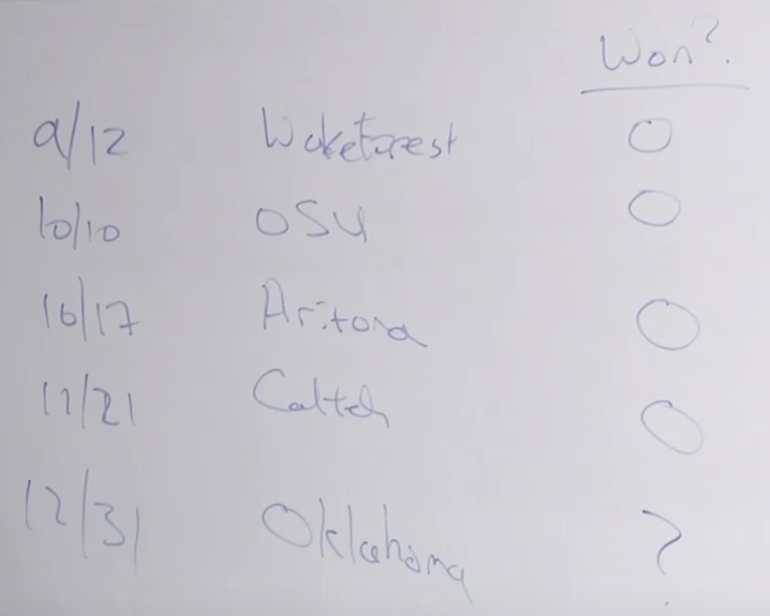 Won?
9/12 Wakeforest O
10/10 OSU O
10/17 Aritona O
11/21 Caltch O
12/31 Oklahoma ?